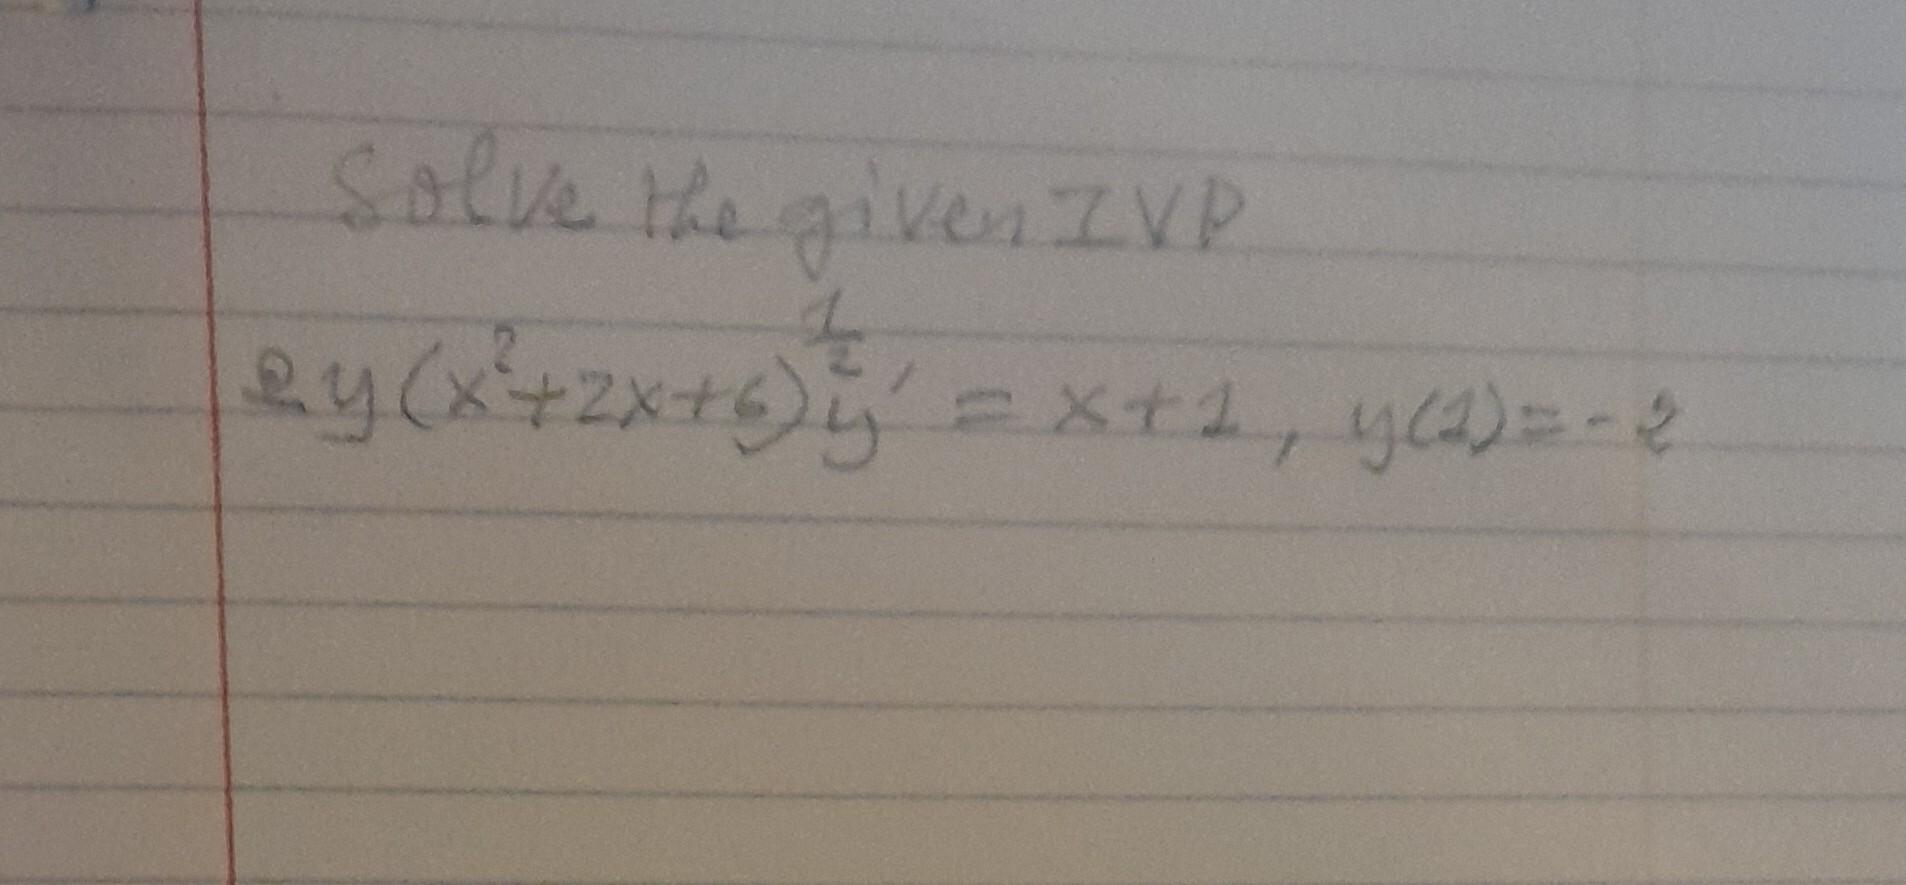 Solve the given IVP
2y(x²+2x+6)^(1/2) y' = x+1, y(1)=-2